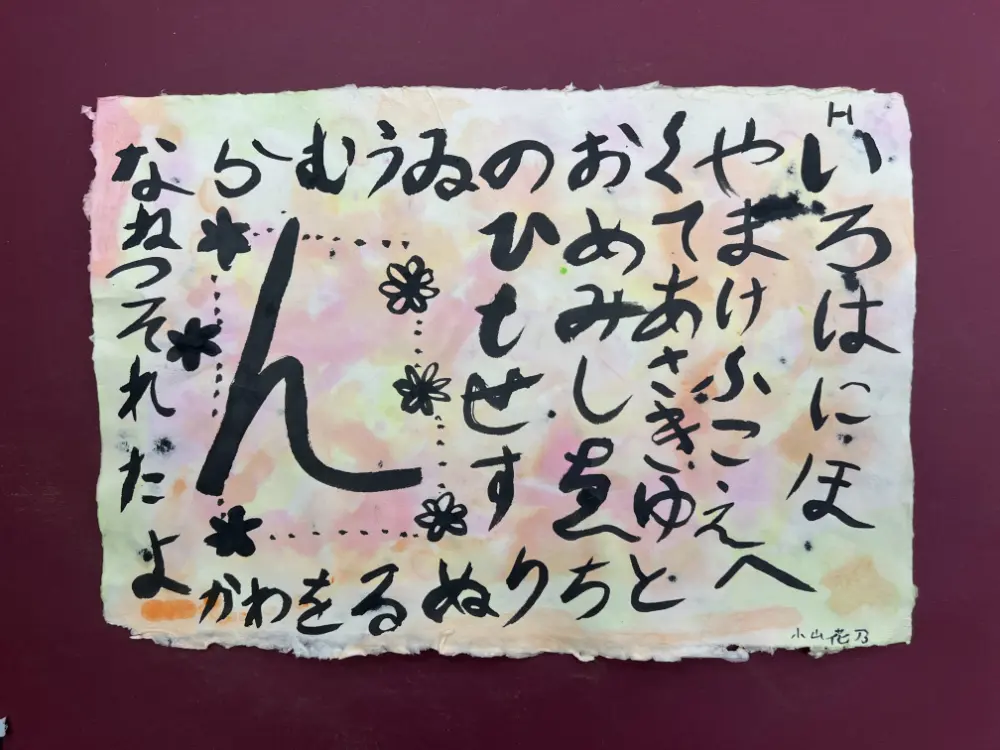 H
いろはにほ
へとちりぬるをわか
よたれそつねな
らむうゐのおくや
まけふこえ
てあさきゆ
めみしゑ
ひもせす
ん
小山花乃